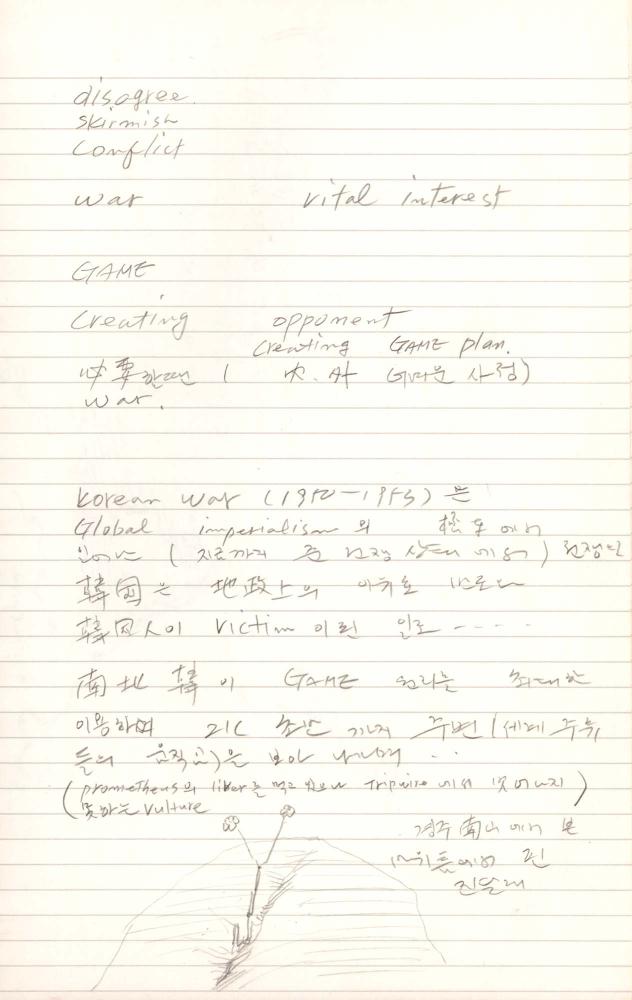 disagree.
skirmish
conflict
war vital interest
GAME
creating opponent
creating GAME plan.
必要한때면 ( 사정)
war.
Korean war (1950-1953) 은
Global imperialism 의 에서
( 지금까지 준 전쟁 상태 에서 ) 전쟁인
韓國은 地政上의
韓国人이 victim 이된 일로 - - - -
南北韓이 GAME 원리를 최대한
이용하며 21C 주변 (세계 주위
들의 움직임)을 보아 나가며 . .
(prometheus의 liver를 먹고 있으나 Tripwire 에서 벗어나지)
못하는 vulture
경주 南山에서 본
바위틈에서 핀
진달래